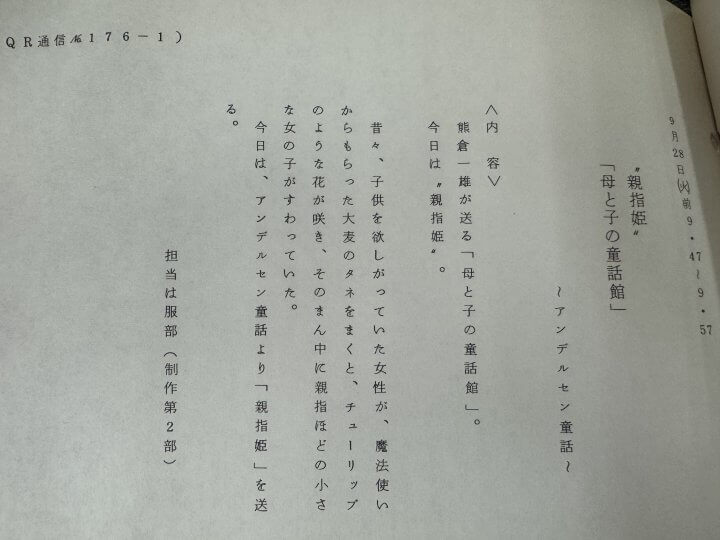 QR通信№176-1)
9月28日(火)前9・47~9・57
「母と子の童話館」
“親指姫”
~アンデルセン童話~
<内容>
熊倉一雄が送る「母と子の童話館」。
今日は“親指姫”。
昔々、子供を欲しがっていた女性が、魔法使い
からもらった大麦のタネをまくと、チューリップ
のような花が咲き、そのまん中に親指ほどの小さ
な女の子がすわっていた。
今日は、アンデルセン童話より「親指姫」を送
る。
担当は服部(制作第2部)